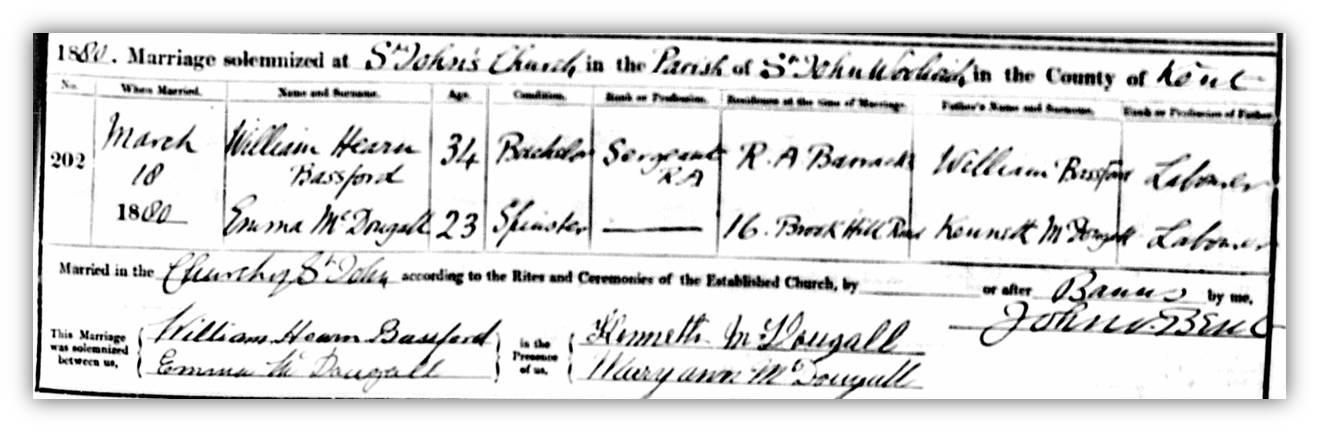 1880. Marriage solemnized at St John's Church in the Parish of St John Woolwich in the County of Kent
No. When Married. Name and Surname. Age. Condition. Rank or Profession. Residence at the time of Marriage. Father's Name and Surname. Rank or Profession of Father.
202 March 18 1880 William Hearn Bassford 34 Bachelor Sergeant RA R. A Barracks William Bassford Labourer
Emma McDougall 23 Spinster — 16. Brook Hill Road Kenneth McDougall Labourer
Married in the Church of St John according to the Rites and Ceremonies of the Established Church, by or after Banns by me,
John
This Marriage was solemnized between us, William Hearn Bassford Emma McDougall in the Presence of us, Kenneth McDougall Mary ann McDougall